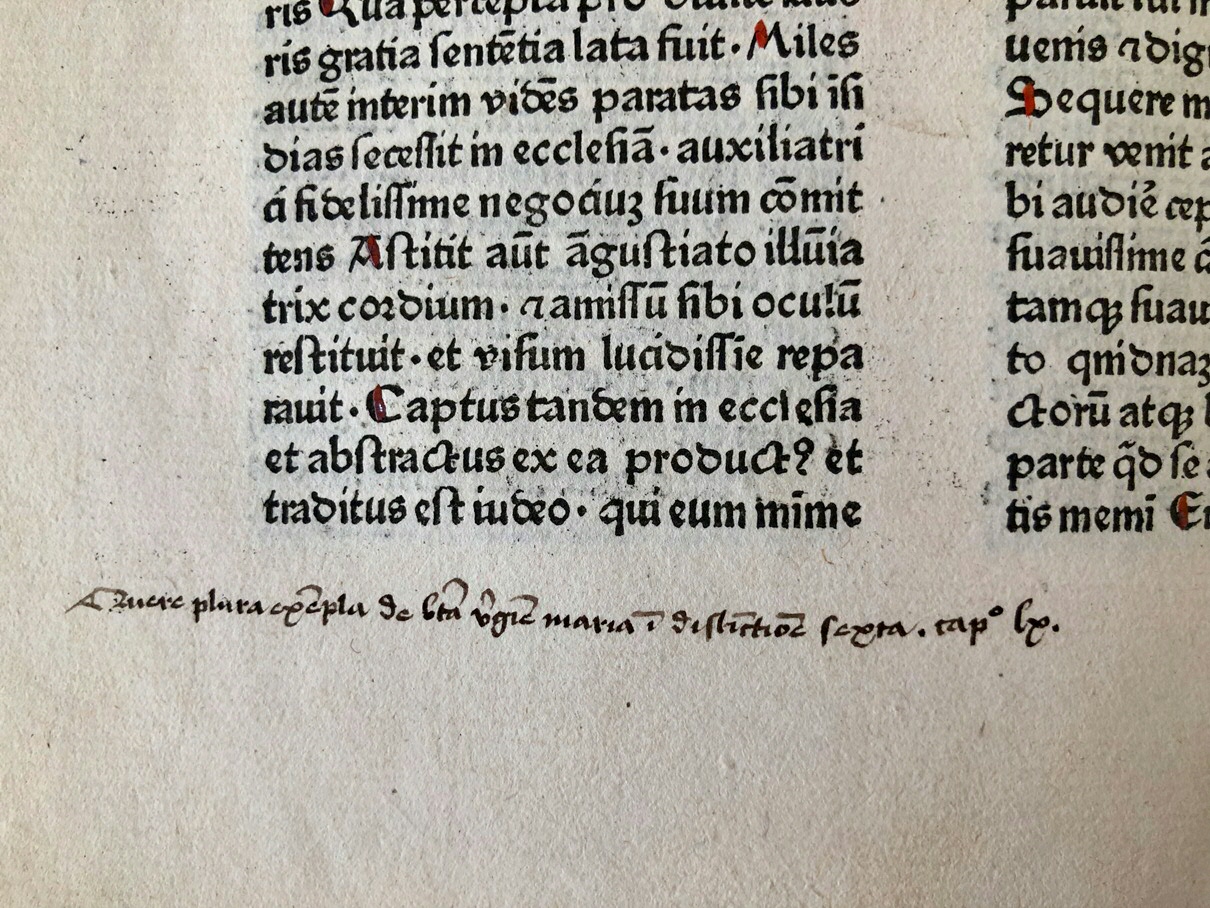 ris Qua percepta pro
ris gratia ſentētia lata fuit · Miles
autē interim vidēs paratas ſibi īſi
dias ſeceſſit in eccleſiā · auxiliatri
ci fideliſſime negociuꝫ ſuum cōmit
tens Aſtitit aūt āguſtiato illūia
trix cordium · ⁊ amiſſū ſibi oculū
reſtituit · et viſum lucidiſſīe repa
rauit · Captus tandem in eccleſia
et abſtractus ex ea product? et
traditus eſt iudeo · qui eum mīme
uenis ⁊ dig
Sequere m
retur venit a
bi audiē cep
ſuauiſſime
tamqꝫ ſuau
to qnidnaꝫ
ctorū atqꝫ
parte q̄d ſe
tis memī
Quere plura exēpla de btā v̄gīe maria ī diſtīctiōe ſexta . cap° lx.